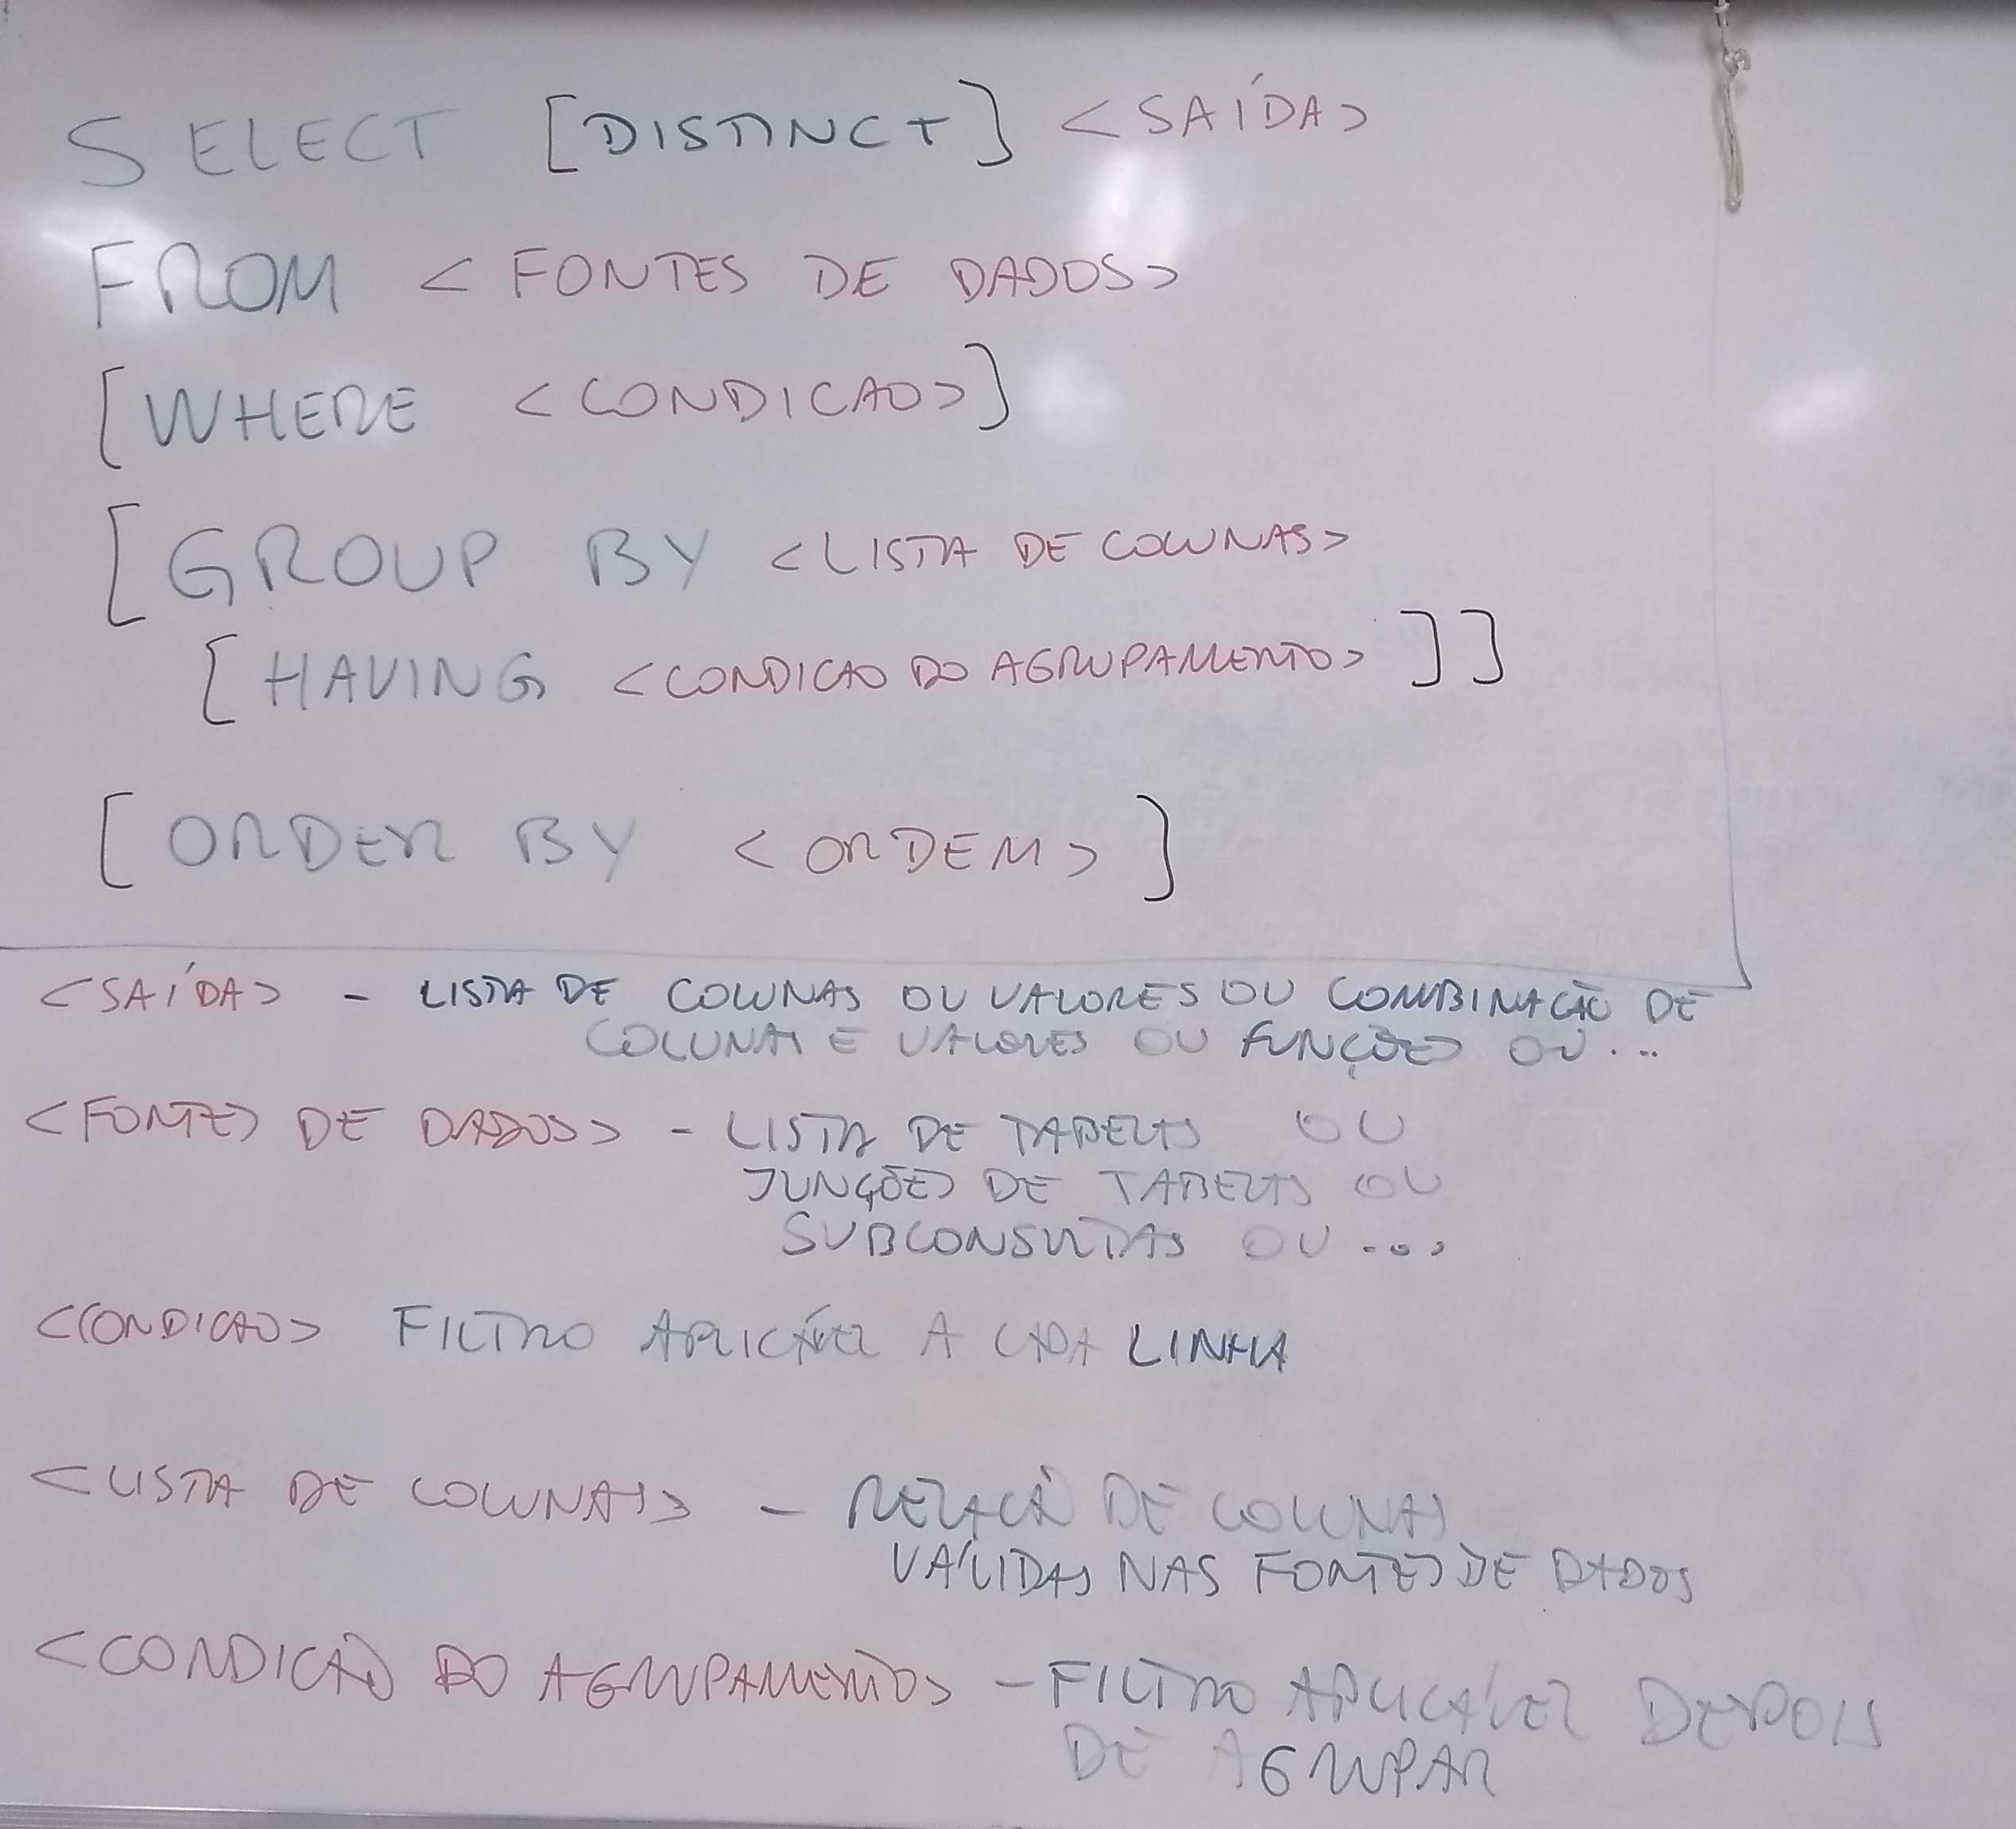 SELECT [DISTINCT] <SAÍDA>
FROM <FONTES DE DADOS>
[WHERE <CONDICAO>]
[GROUP BY <LISTA DE COLUNAS>
[HAVING <CONDICAO DO AGRUPAMENTO>]]
[ORDER BY <ORDEM>]
<SAÍDA> - LISTA DE COLUNAS OU VALORES OU COMBINAÇÃO DE
COLUNAS E VALORES OU FUNÇÕES OU...
<FONTES DE DADOS> - LISTA DE TABELAS OU
JUNÇÕES DE TABELAS OU
SUBCONSULTAS OU ...
<CONDICAO> FILTRO APLICÁVEL A CADA LINHA
<LISTA DE COLUNAS> - RELAÇÃO DE COLUNAS
VÁLIDAS NAS FONTES DE DADOS
<CONDICÃO DO AGRUPAMENTO> - FILTRO APLICÁVEL DEPOIS
DE AGRUPAR